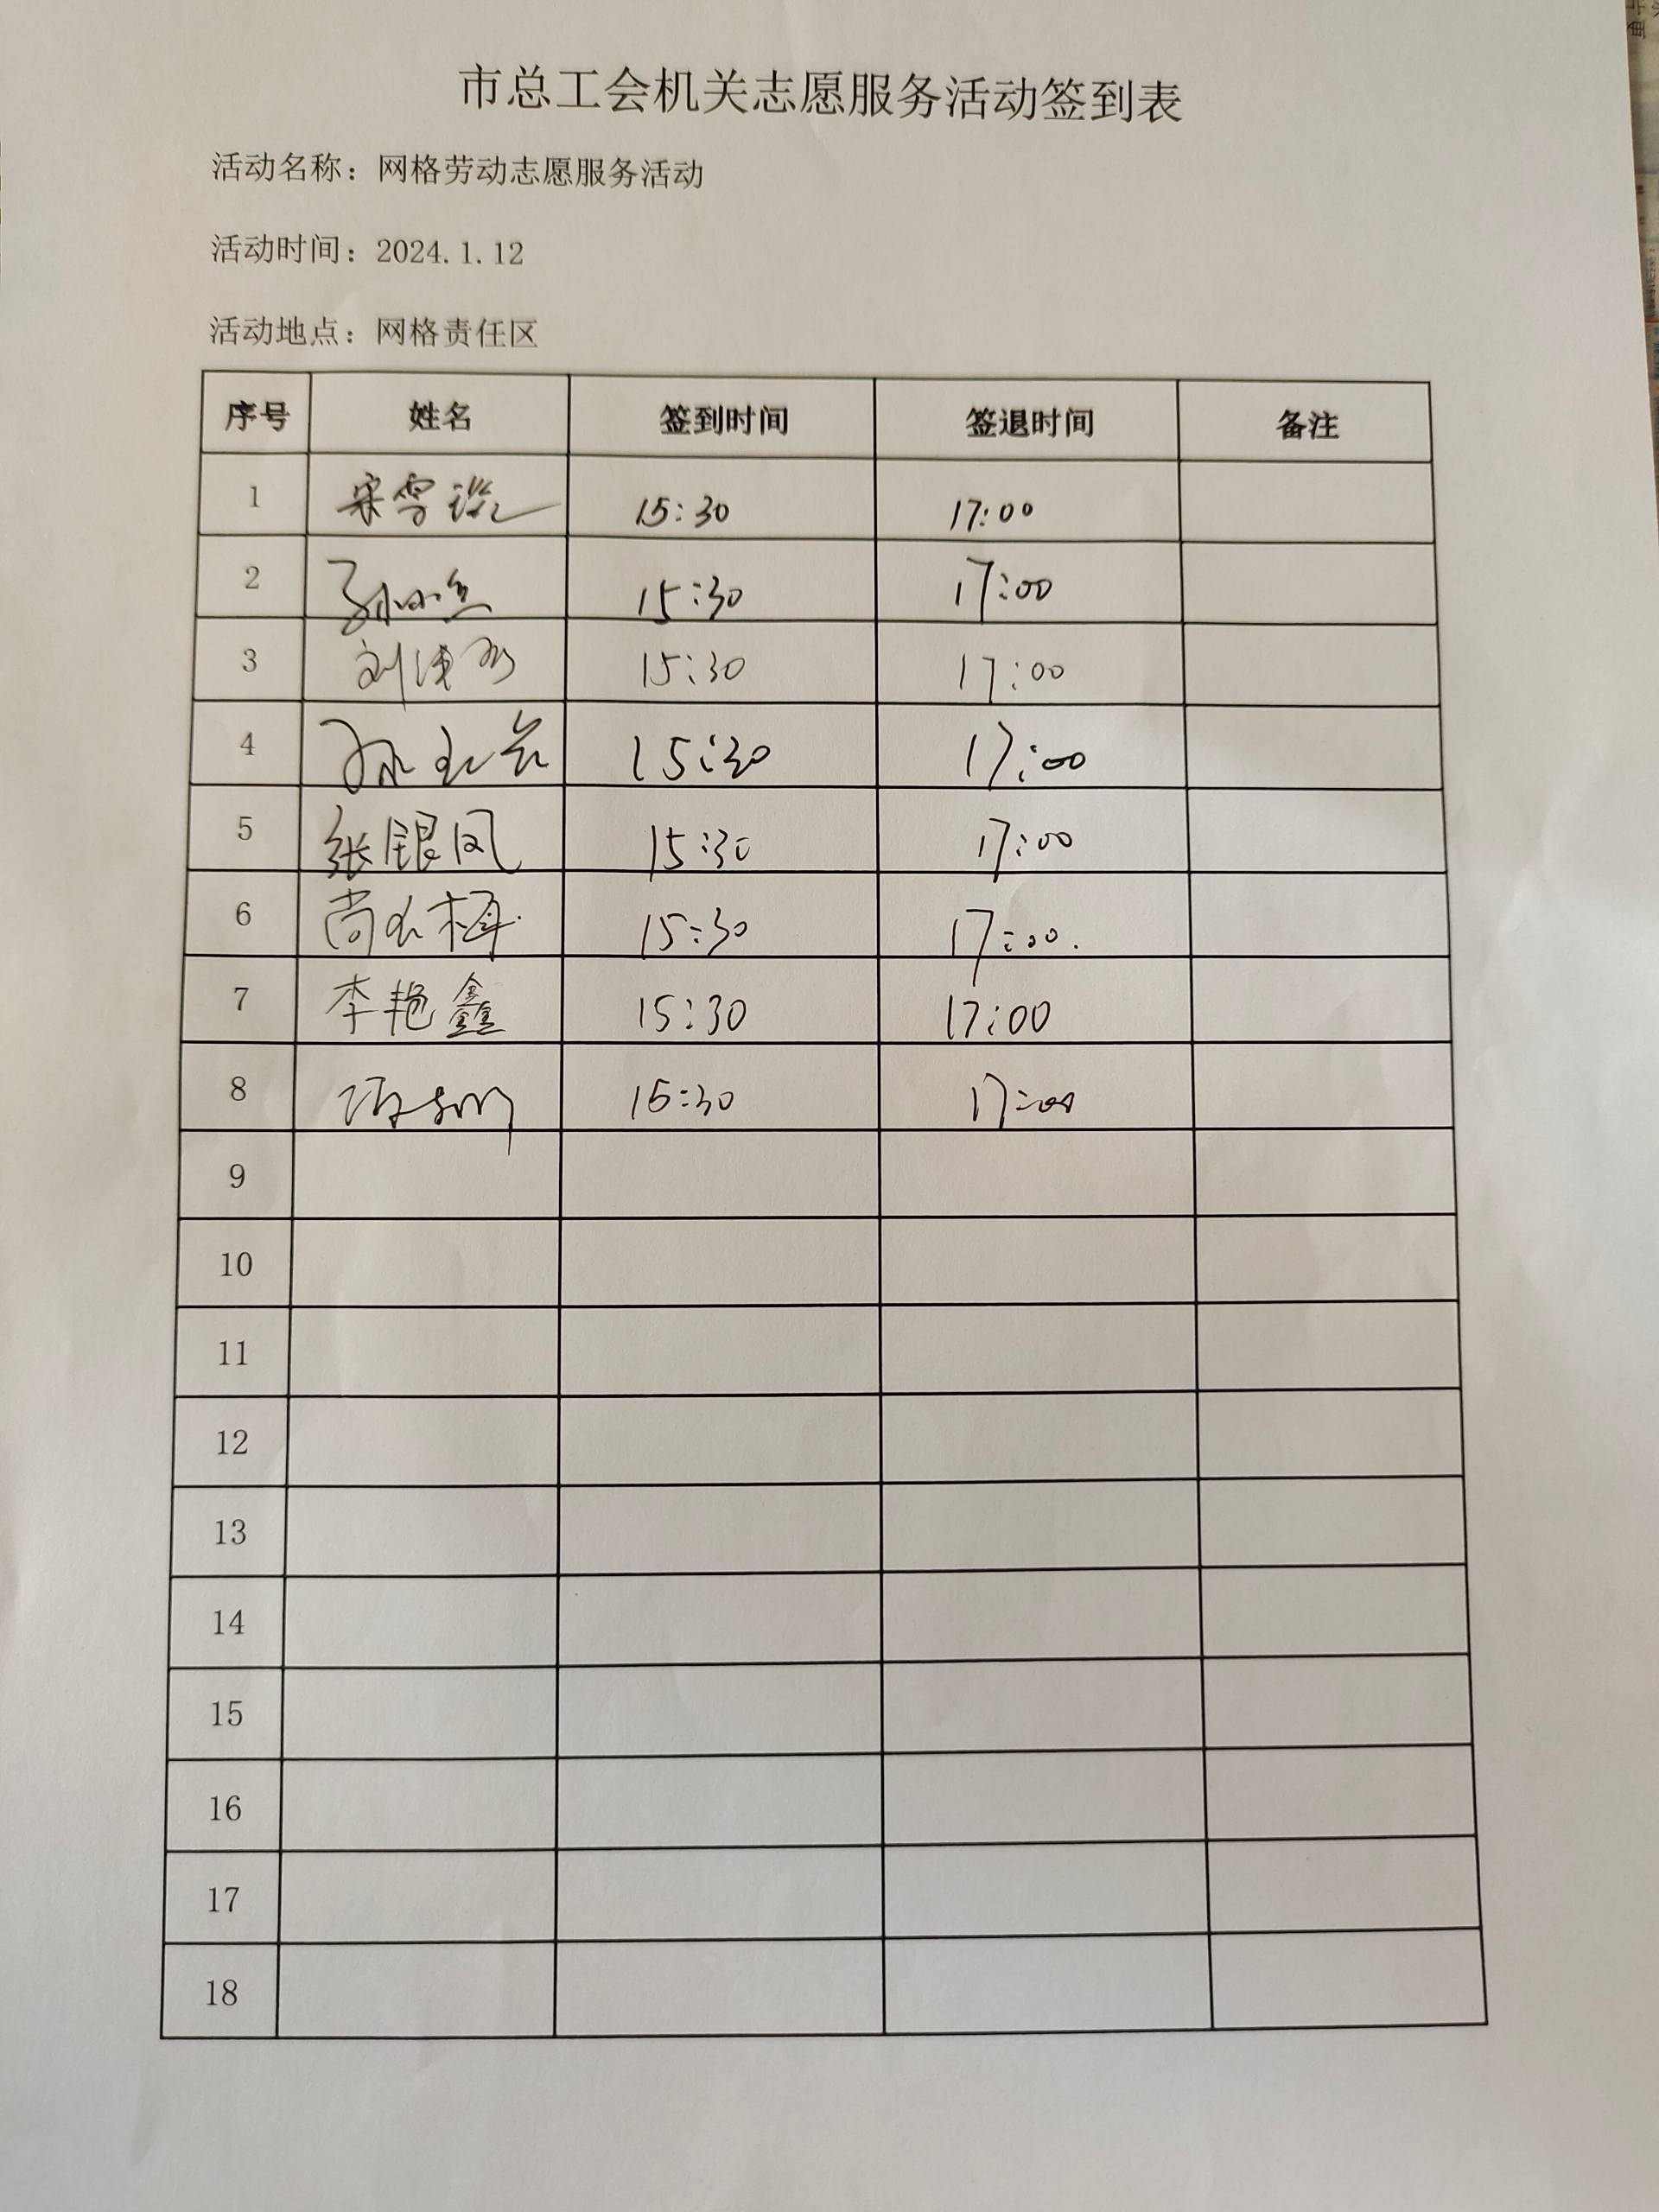 市总工会机关志愿服务活动签到表
活动名称：网格劳动志愿服务活动
活动时间：2024.1.12
活动地点：网格责任区
序号 姓名 签到时间 签退时间 备注
1 宋雪 15:30 17:00
2 孙 15:30 17:00
3 刘 15:30 17:00
4 15:30 17:00
5 张银凤 15:30 17:00
6 尚 梅 15:30 17:00.
7 李艳鑫 15:30 17:00
8 15:30 17:00
9
10
11
12
13
14
15
16
17
18